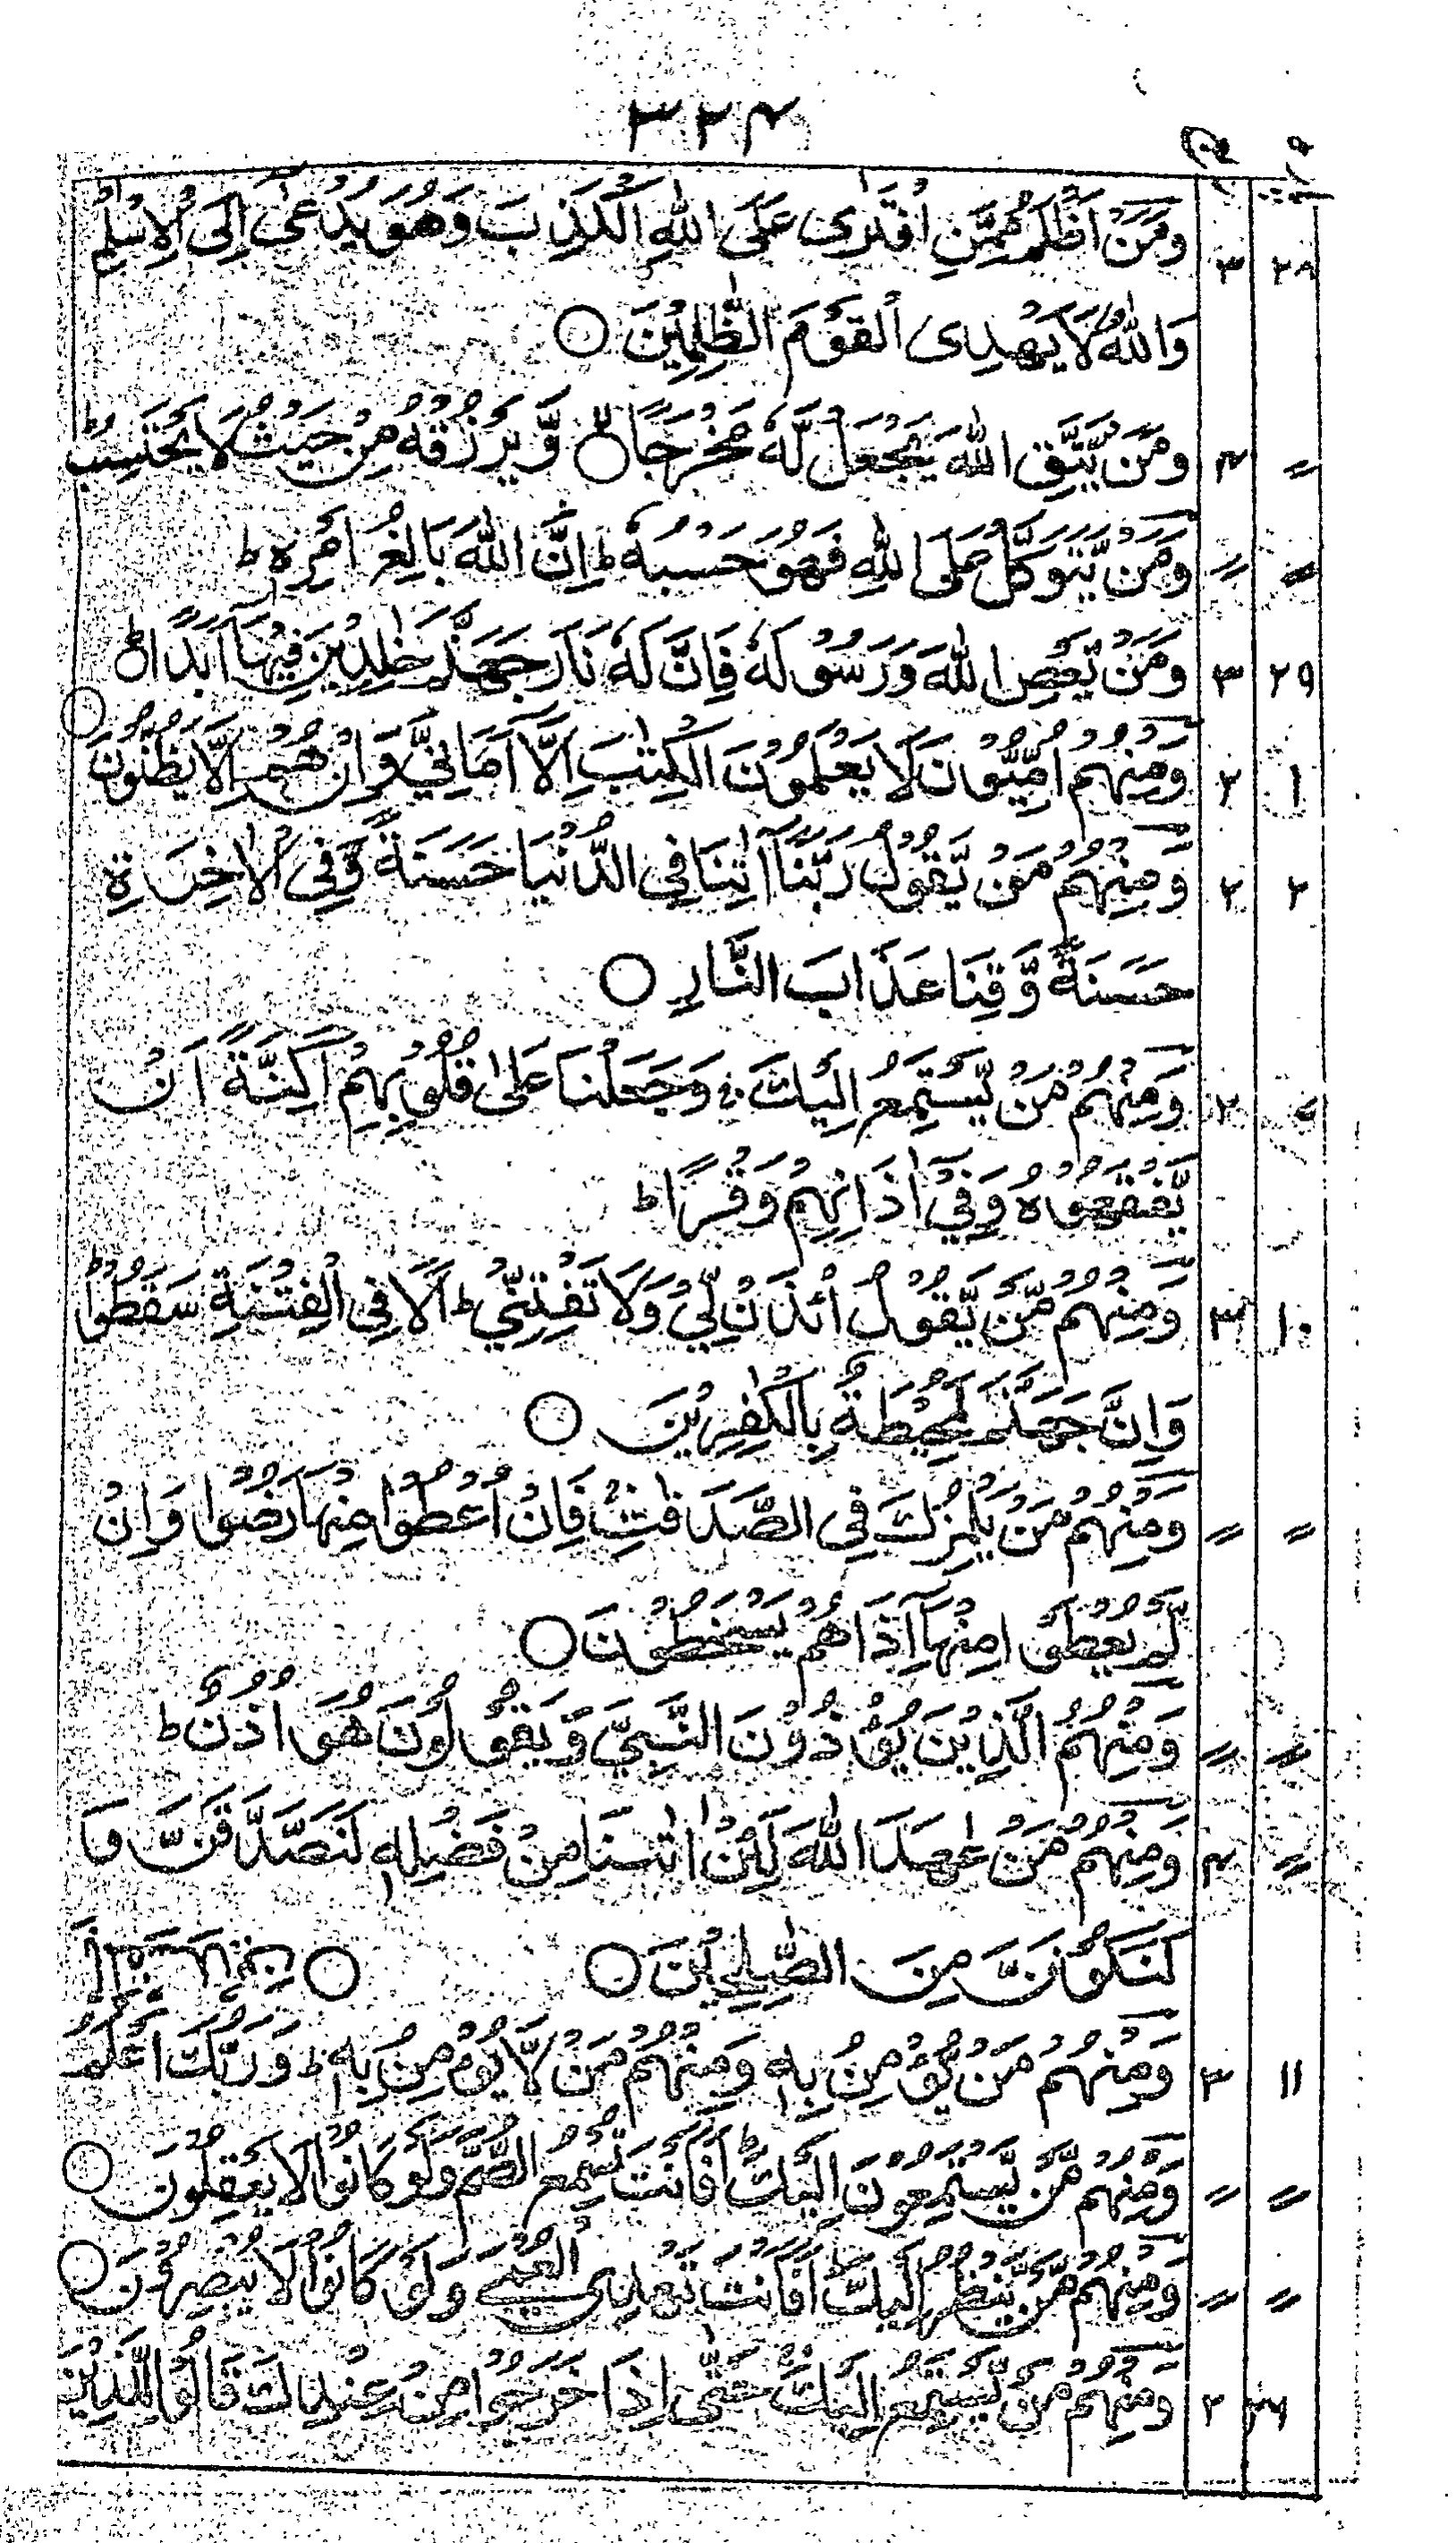 ۳۲۴
۲۸ ۳ وَمَنْ اَظْلَمُ مِمَّنِ افْتَرٰى عَلَى اللّٰهِ الْكَذِبَ وَهُوَ يُدْعٰٓى اِلَى الْاِسْلَامِ ؕ
وَاللّٰهُ لَا يَهْدِى الْقَوْمَ الظّٰلِمِيْنَ ○
〃 ۴ وَمَنْ يَّتَّقِ اللّٰهَ يَجْعَلْ لَّهٗ مَخْرَجًا ○ۙ وَّيَرْزُقْهُ مِنْ حَيْثُ لَا يَحْتَسِبُ ؕ
〃 〃 وَمَنْ يَّتَوَكَّلْ عَلَى اللّٰهِ فَهُوَ حَسْبُهٗ ؕ اِنَّ اللّٰهَ بَالِغُ اَمْرِهٖ ؕ
۲۹ ۳ وَمَنْ يَّعْصِ اللّٰهَ وَرَسُوْلَهٗ فَاِنَّ لَهٗ نَارَ جَهَنَّمَ خٰلِدِيْنَ فِيْهَآ اَبَدًا ؕ
۱ ۲ وَمِنْهُمْ اُمِّيُّوْنَ لَا يَعْلَمُوْنَ الْكِتٰبَ اِلَّآ اَمَانِيَّ وَاِنْ هُمْ اِلَّا يَظُنُّوْنَ ○
۲ ۲ وَمِنْهُمْ مَّنْ يَّقُوْلُ رَبَّنَآ اٰتِنَا فِى الدُّنْيَا حَسَنَةً وَّفِى الْاٰخِرَةِ
حَسَنَةً وَّقِنَا عَذَابَ النَّارِ ○
۷ ۲ وَمِنْهُمْ مَّنْ يَّسْتَمِعُ اِلَيْكَ ۚ وَجَعَلْنَا عَلٰى قُلُوْبِهِمْ اَكِنَّةً اَنْ
يَّفْقَهُوْهُ وَفِيْٓ اٰذَانِهِمْ وَقْرًا ؕ
۱۰ ۳ وَمِنْهُمْ مَّنْ يَّقُوْلُ ائْذَنْ لِّيْ وَلَا تَفْتِنِّيْ ؕ اَلَا فِى الْفِتْنَةِ سَقَطُوْا ؕ
وَاِنَّ جَهَنَّمَ لَمُحِيْطَةٌۢ بِالْكٰفِرِيْنَ ○
〃 〃 وَمِنْهُمْ مَّنْ يَّلْمِزُكَ فِى الصَّدَقٰتِ ۚ فَاِنْ اُعْطُوْا مِنْهَا رَضُوْا وَاِنْ
لَّمْ يُعْطَوْا مِنْهَآ اِذَا هُمْ يَسْخَطُوْنَ ○
〃 〃 وَمِنْهُمُ الَّذِيْنَ يُؤْذُوْنَ النَّبِيَّ وَيَقُوْلُوْنَ هُوَ اُذُنٌ ؕ
〃 ۴ وَمِنْهُمْ مَّنْ عٰهَدَ اللّٰهَ لَئِنْ اٰتٰىنَا مِنْ فَضْلِهٖ لَنَصَّدَّقَنَّ وَ
لَنَكُوْنَنَّ مِنَ الصّٰلِحِيْنَ ○ ○
۱۱ ۳ وَمِنْهُمْ مَّنْ يُّؤْمِنُ بِهٖ وَمِنْهُمْ مَّنْ لَّا يُؤْمِنُ بِهٖ ؕ وَرَبُّكَ اَعْلَمُ
〃 〃 وَمِنْهُمْ مَّنْ يَّسْتَمِعُوْنَ اِلَيْكَ ؕ اَفَاَنْتَ تُسْمِعُ الصُّمَّ وَلَوْ كَانُوْا لَا يَعْقِلُوْنَ ○
〃 〃 وَمِنْهُمْ مَّنْ يَّنْظُرُ اِلَيْكَ ؕ اَفَاَنْتَ تَهْدِى الْعُمْيَ وَلَوْ كَانُوْا لَا يُبْصِرُوْنَ ○
۲۶ ۲ وَمِنْهُمْ مَّنْ يَّسْتَمِعُ اِلَيْكَ ۚ حَتّٰٓى اِذَا خَرَجُوْا مِنْ عِنْدِكَ قَالُوْا لِلَّذِيْنَ